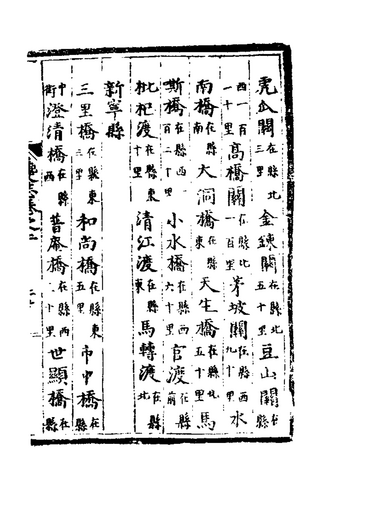 虎爪關在縣北三里金鍊關在縣北五十里豆山關在縣
西一百一十里高橋關在縣北一百里茅坡關在縣西九十里水
南橋在縣南大洞橋在縣東天生橋在縣北五十里馬
斯橋在縣西百二十里小水橋在縣西六十里官渡在縣前
枇杷渡在縣東十里清紅渡在縣東馬轉渡在縣北
新寧縣
三里橋在縣東三里和尚橋在縣東五里市中橋在縣
中街澄清橋在縣西普庵橋在縣西二十里世顯橋在縣